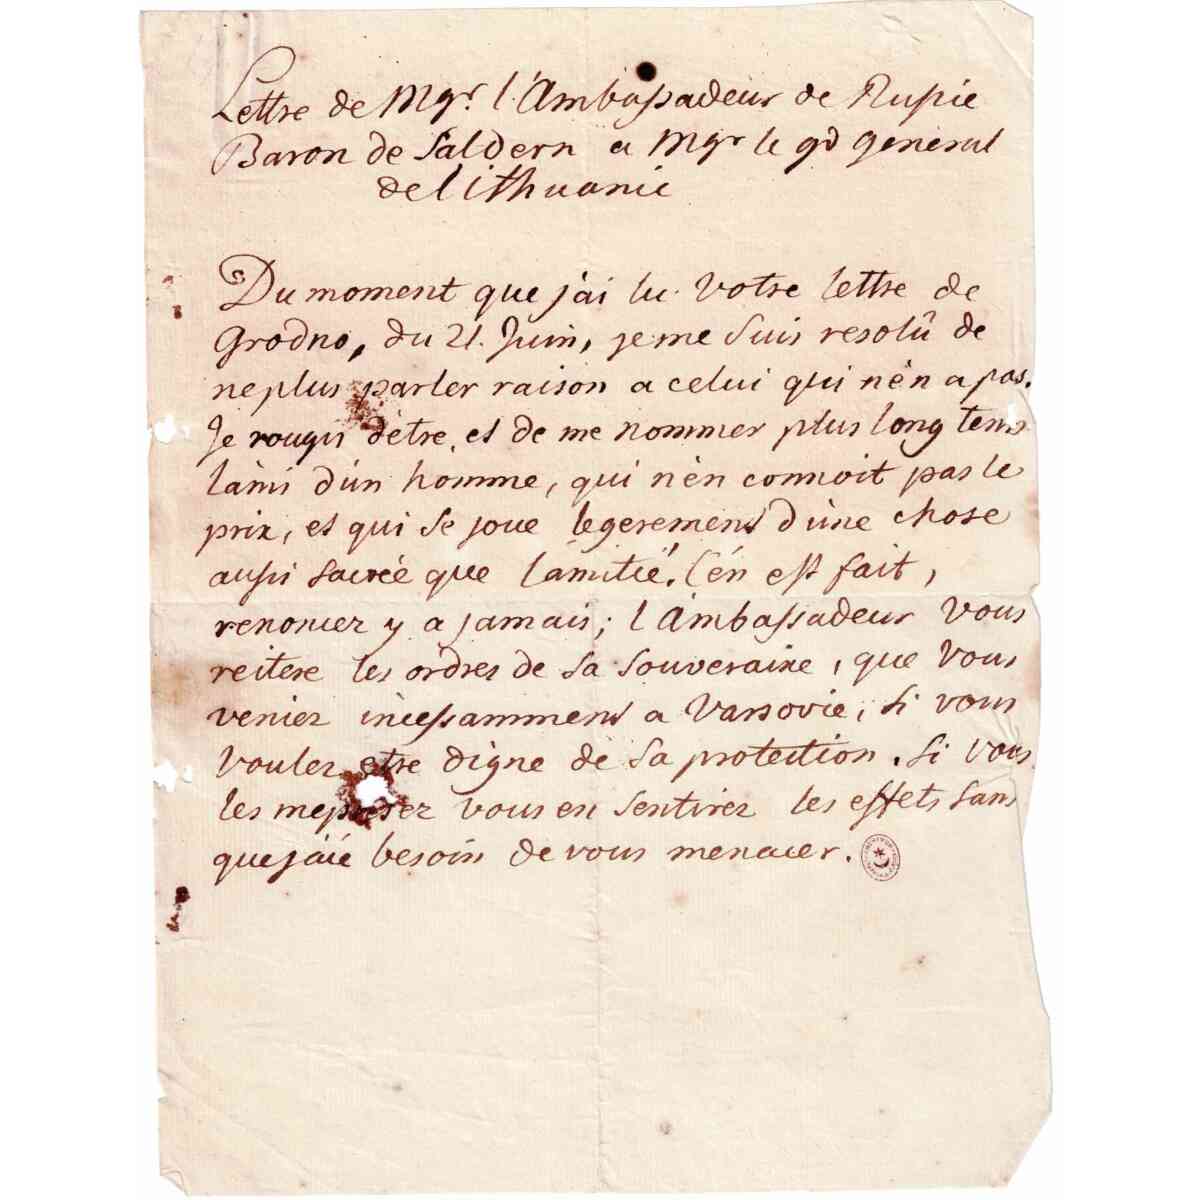 Lettre de Mgr. l'Ambassadeur de Russie
Baron de Saldern a Mgr le gd general
de Lithuanie
Du moment que j'ai lu votre lettre de
Grodno, du 21. Juin, je me suis resolû de
ne plus parler raison a celui qui n'en a pas.
Je rougis d'être, et de me nommer plus long tems
l'ami d'un homme, qui n'en connoit pas le
prix, et qui se joue legerement d'une chose
aussi sacreé que l'amitié. C'en est fait,
renoncez y a jamais; l'Ambassadeur vous
reitere les ordres de sa souveraine, que vous
veniez incessamment a Varsovie, si vous
voulez etre digne de sa protection. Si vous
les meprisez vous en sentirez les effets sans
que j'aie besoin de vous menacer.